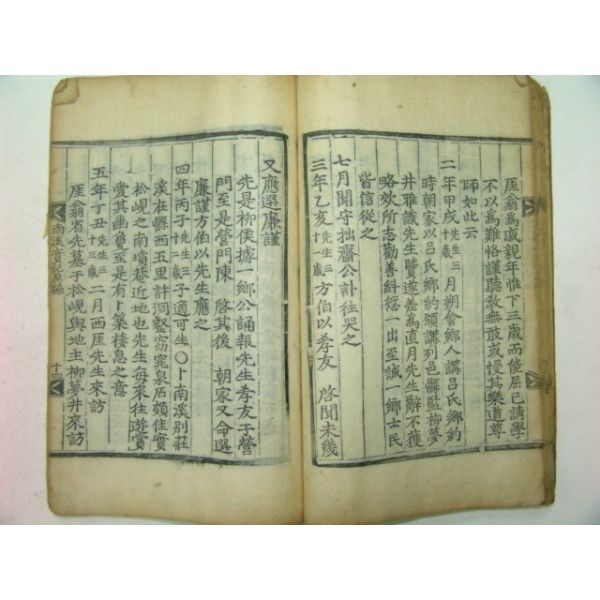 厓翁爲戚親年惟下三歲而能屈己請學
不以爲難恪謹聽教無敢或慢其樂道尊
師如此云
二年甲戌先生三十歲三月朔會鄉人講呂氏鄉約
時朝家以呂氏鄉約頒講列邑縣監柳夢
井雅識先生賢遂差爲直月先生辭不獲
略效所志勸善糾一出至誠一鄉士民
皆信從之
七月聞守拙齋公訃往哭之
三年乙亥先生三十一歲方伯以孝友啓聞未幾
又應選廉謹
先是柳侯據一鄉公誦報先生孝友于營
門至是營門陳啓其後朝家又命選
廉謹方伯以先生應之
四年丙子先生三十二歲子適可生○卜南溪別莊
溪在縣西五里許洞壑窈窕泉石頗佳實
松峴之南墳菴近地也先生每來往遊賞
賞其幽夐至是有卜築棲息之意
五年丁丑先生三十三歲二月西厓先生來訪
厓翁省先墓于松峴與地主柳夢井來訪
南溪實紀
十四